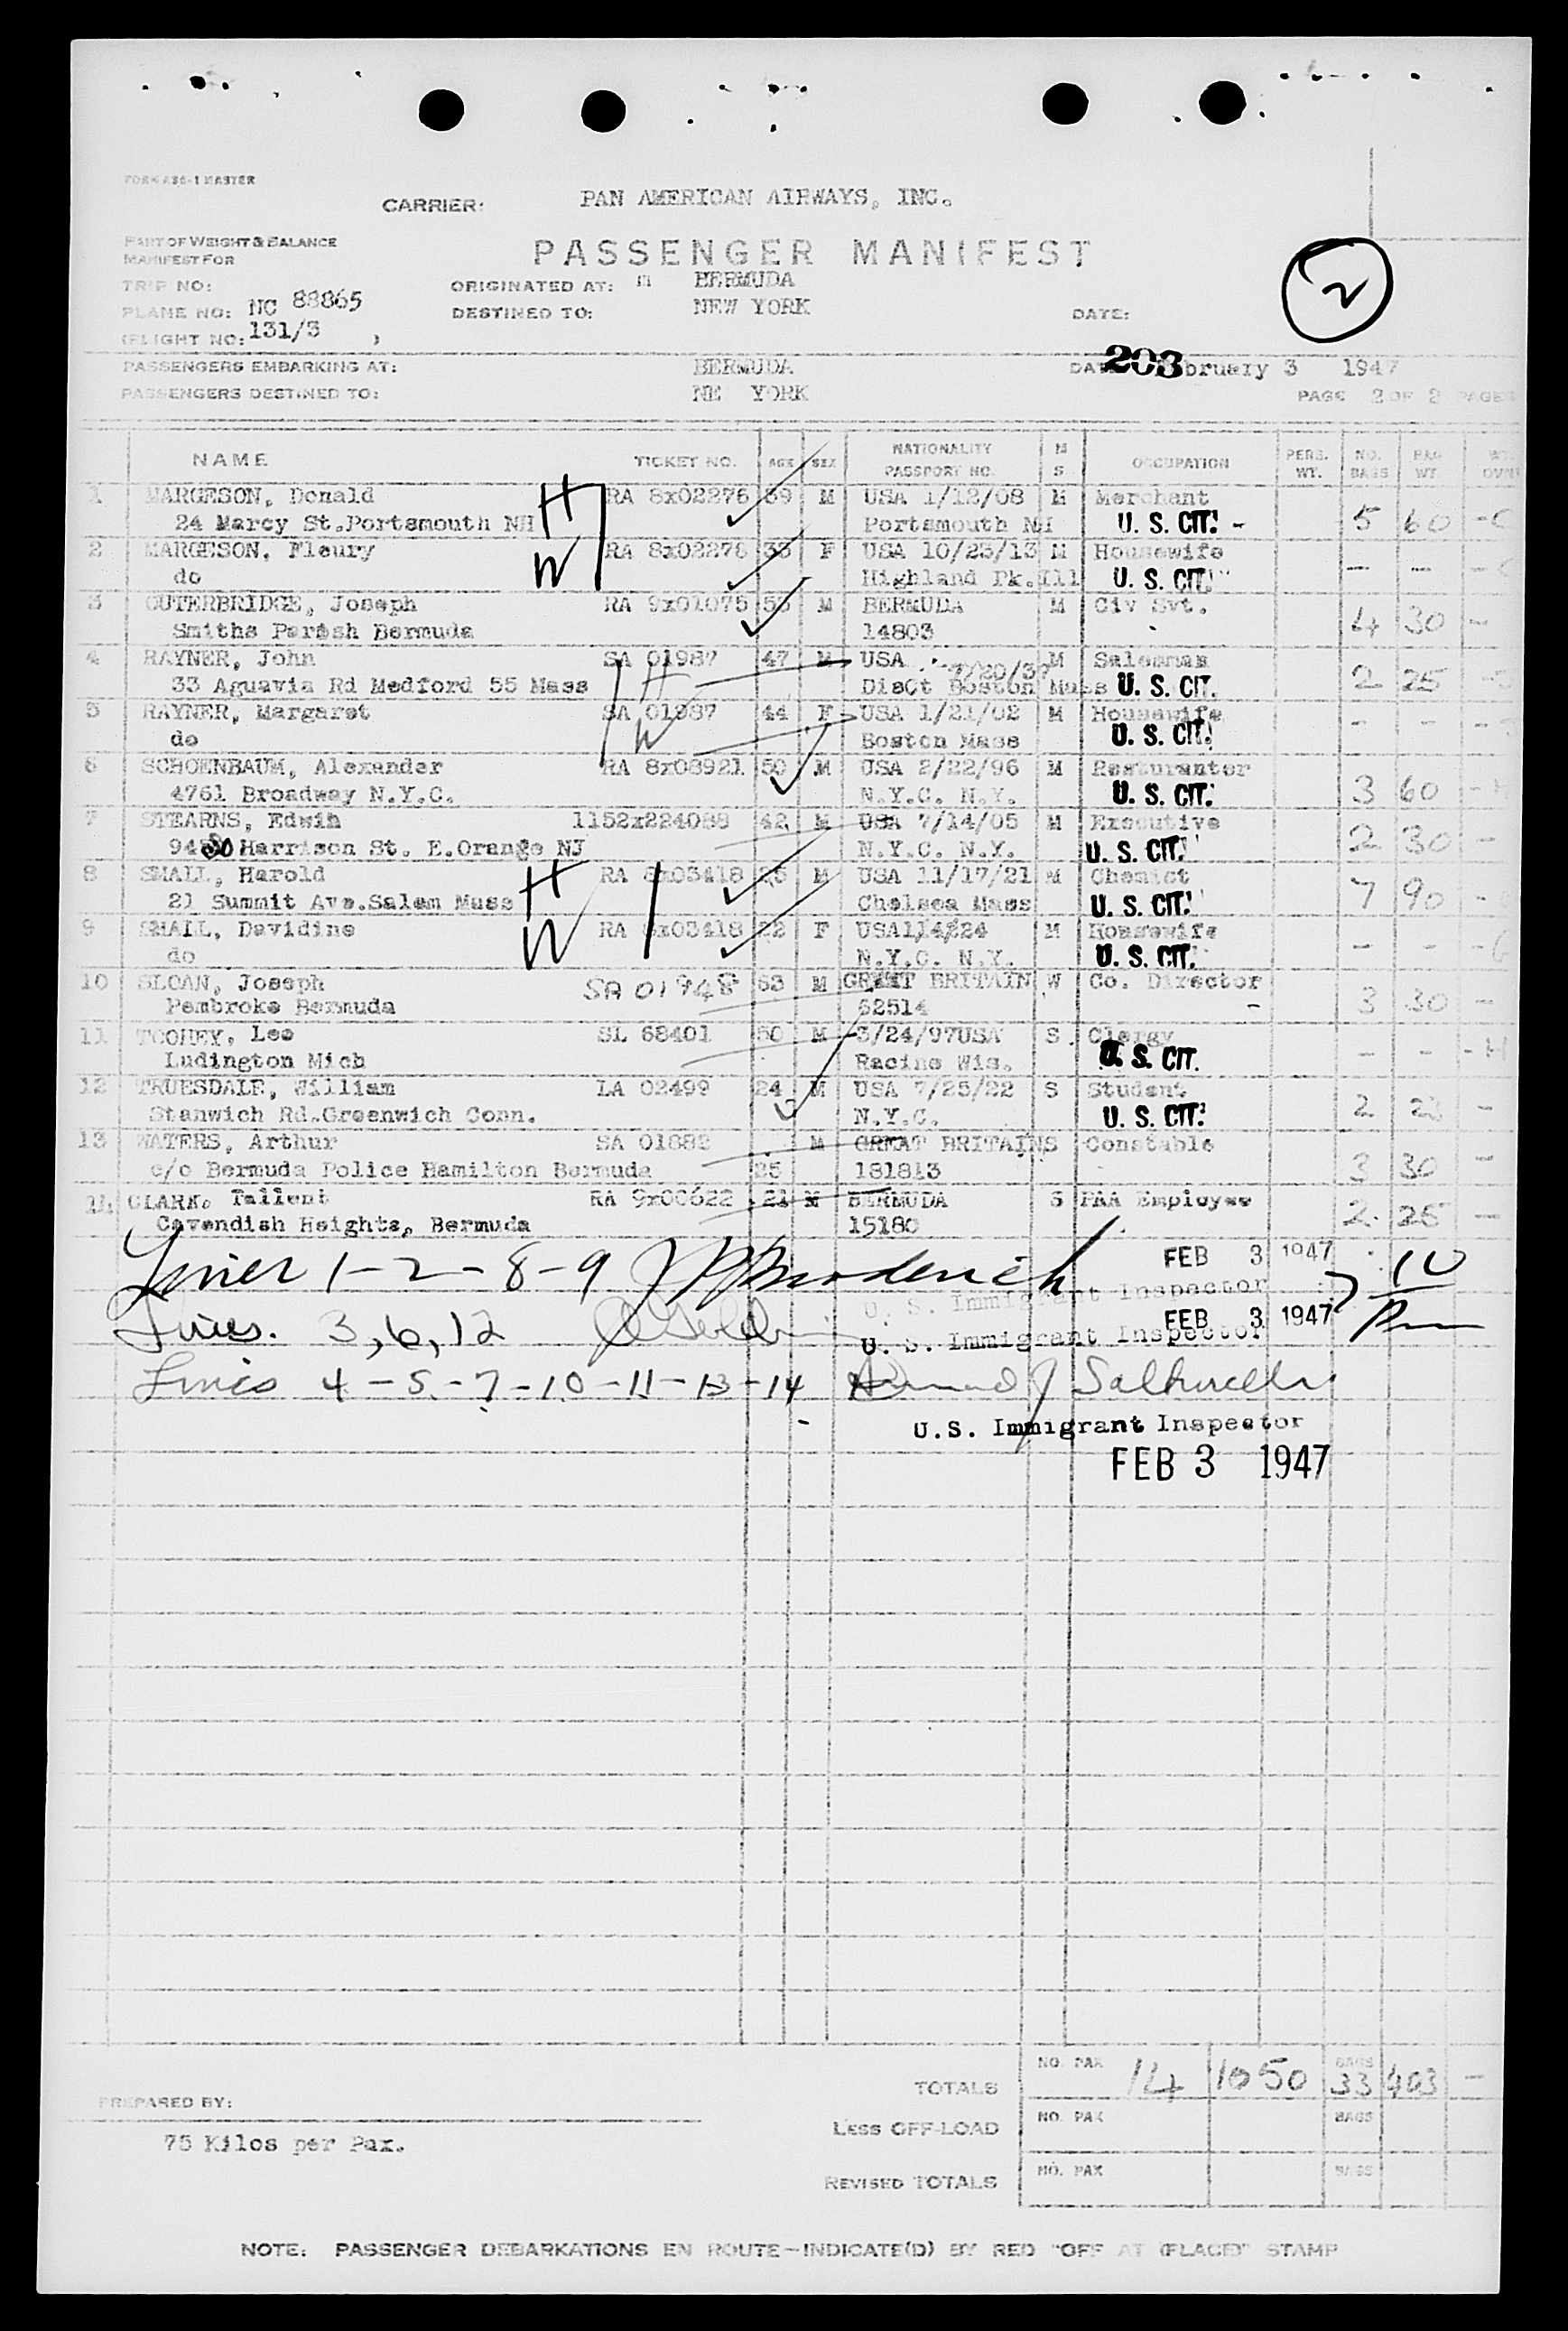 FORM 496-1 MASTER
CARRIER: PAN AMERICAN AIRWAYS, INC.
PART OF WEIGHT & BALANCE
MANIFEST FOR
PASSENGER MANIFEST
TRIP NO: ORIGINATED AT: BERMUDA
PLANE NO: NC 88865 DESTINED TO: NEW YORK DATE:
(FLIGHT NO: 131/3 )
2
PASSENGERS EMBARKING AT: BERMUDA 203 bruary 3 1947
PASSENGERS DESTINED TO: NE YORK PAGE 2 OF 2 PAGES
NAME TICKET NO. AGE SEX NATIONALITY PASSPORT NO. M S OCCUPATION PERS. WT. NO. BAGS BAG WT
1 MARGESON, Donald H RA 8x02276 39 M USA 1/12/08 M Merchant
24 Marcy St.Portsmouth NH Portsmouth NH U. S. CIT. - 5 60
2 MARGESON, Fleury W RA 8x02276 33 F USA 10/25/13 M Housewife
do Highland Pk.Ill U. S. CIT. - -
3 OUTERBRIDGE, Joseph RA 9x01075 55 M BERMUDA M Civ Svt.
Smiths Parish Bermuda 14803 4 30 -
4 RAYNER, John SA 01987 47 M USA 7/20/37 M Salesman
33 Aguavia Rd Medford 55 Mass H DisCt Boston Mass U. S. CIT. 2 25
5 RAYNER, Margaret SA 01987 44 F USA 1/21/02 M Housewife
do W Boston Mass U. S. CIT. - -
6 SCHOENBAUM, Alexander RA 8x08921 50 M USA 2/22/96 M Resturanter
4761 Broadway N.Y.C. N.Y.C. N.Y. U. S. CIT. 3 60
7 STEARNS, Edwin 1152x224088 42 M USA 7/14/05 M Executive
Harrison St. E.Orange NJ N.Y.C. N.Y. U. S. CIT. 2 30 -
8 SMALL, Harold H RA 8x03418 25 M USA 11/17/21 M Chemist
21 Summit Ave.Salem Mass Chelsea Mass U. S. CIT. 7 90
9 SMALL, Davidine W RA 8x03418 22 F USA M Housewife
do N.Y.C. N.Y. U. S. CIT. - -
10 SLOAN, Joseph SA 01948 53 M GREAT BRITAIN W Co. Director
Pembroke Bermuda 52514 - 3 30 -
11 TOOHEY, Leo SL 68401 50 M 3/24/97USA S Clergy
Ludington Mich Racine Wis. U. S. CIT. - - - H
12 TRUESDALE, William LA 02499 24 M USA 7/25/22 S Student
Stanwich Rd.Greenwich Conn. N.Y.C. U. S. CIT. 2 23 -
13 WATERS, Arthur SA 01882 M GREAT BRITAIN S Constable
c/o Bermuda Police Hamilton Bermuda 25 181813 3 30 -
14 CLARK. Tallent RA 9x00622 21 M BERMUDA S PAA Employee
Cavendish Heights, Bermuda 15180 2 25 -
Lines 1-2-8-9 FEB 3 1947 10
U. S. Immigrant Inspector
Lines. 3,6,12 FEB 3 1947 Pm
U. S. Immigrant Inspector
Lines 4-5-7-10-11-13-14
U.S. Immigrant Inspector
FEB 3 1947
TOTALS NO. PAX 14 1050 BAGS 33 403 -
PREPARED BY:
LESS OFF-LOAD NO. PAX BAGS
75 Kilos per Pax.
REVISED TOTALS NO. PAX BAGS
NOTE: PASSENGER DEBARKATIONS EN ROUTE—INDICATE(D) BY RED "OFF AT (PLACE)" STAMP